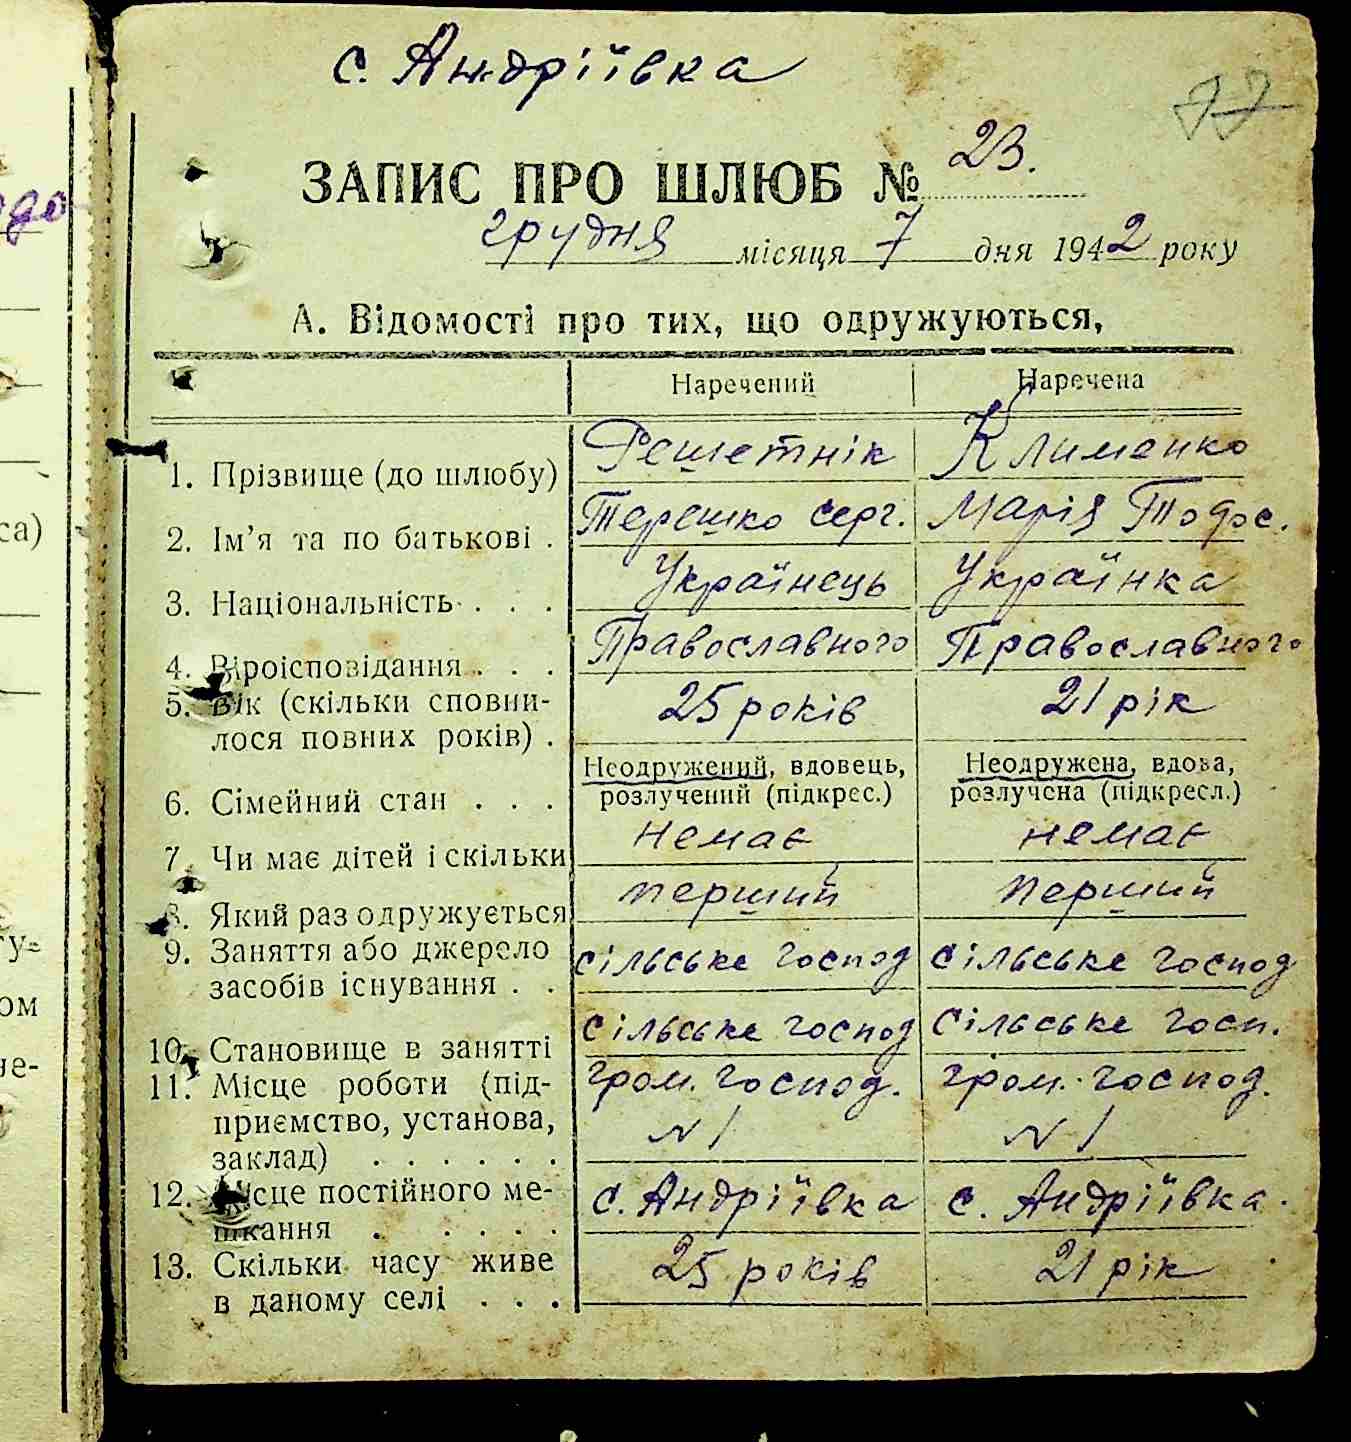 с. Андріївка
77
ЗАПИС ПРО ШЛЮБ № 23.
грудня місяця 7 дня 1942 року
А. Відомості про тих, що одружуються,
Наречений Наречена
1. Прізвище (до шлюбу) Решетнік Клименко
2. Ім'я та по батькові . Терешко Серг. Марія Тодос.
3. Національність . . . Українець Українка
4. Віроісповідання . . . Православного Православного
5. Вік (скільки сповни-
лося повних років) . 25 років 21 рік
6. Сімейний стан . . . Неодружений, вдовець, розлучений (підкрес.) Неодружена, вдова, розлучена (підкресл.)
7. Чи має дітей і скільки немає немає
8. Який раз одружується перший перший
9. Заняття або джерело
засобів існування . . сільське господ сільське господ
10. Становище в занятті сільське господ сільське госп.
11. Місце роботи (під- гром. господ. гром. господ.
приємство, установа, N 1 N 1
заклад) . . . . . .
12. Місце постійного ме- с. Андріївка с. Андріївка.
шкання . . . . .
13. Скільки часу живе 25 років 21 рік
в даному селі . . .
са)
ом